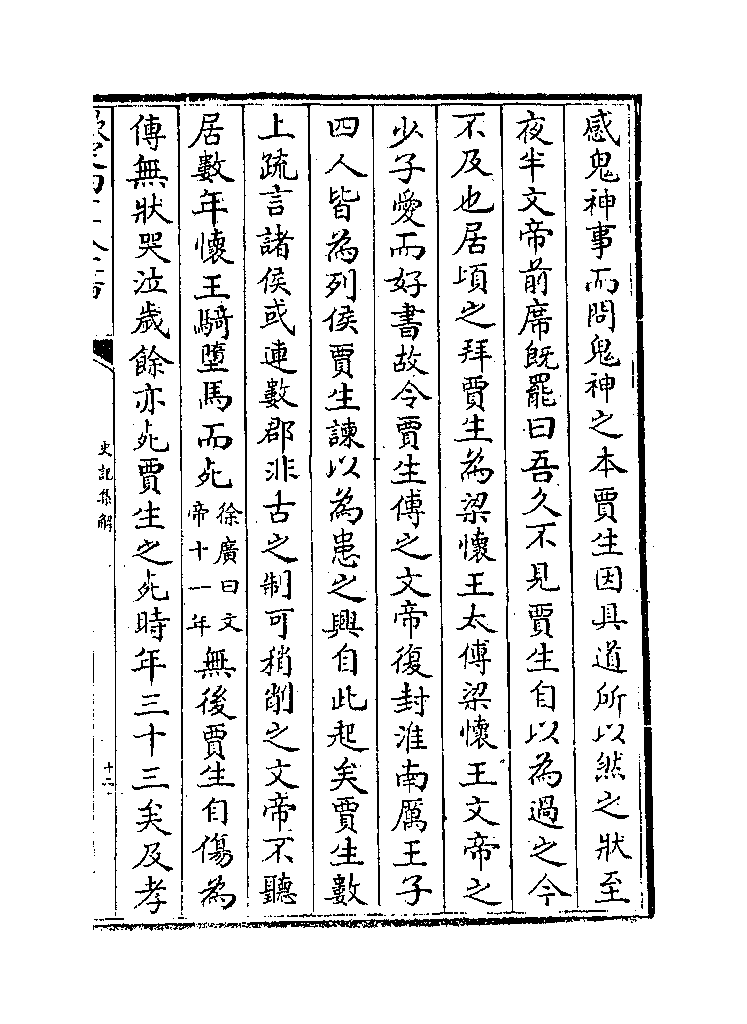 感鬼神事而問鬼神之本賈生因具道所以然之狀至
夜半文帝前席既罷曰吾久不見賈生自以為過之今
不及也居頃之拜賈生為梁懷王太傅梁懷王文帝之
少子愛而好書故令賈生傅之文帝復封淮南厲王子
四人皆為列侯賈生諫以為患之興自此起矣賈生數
上疏言諸侯或連數郡非古之制可稍削之文帝不聽
居數年懷王騎墮馬而死徐廣曰文帝十一年無後賈生自傷為
傅無狀哭泣歲餘亦死賈生之死時年三十三矣及孝
史記集解